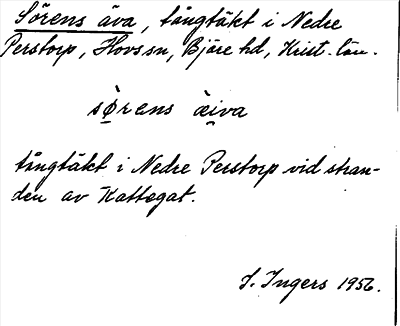 Sörens äva, tångtäkt i Nedre
Perstorp, Hovs sn, Bjäre hd, Krist. län.
sø̣rens æi̯va
tångtäkt i Nedre Perstorp vid stran-
den av Kattegat.
I. Ingers 1956.